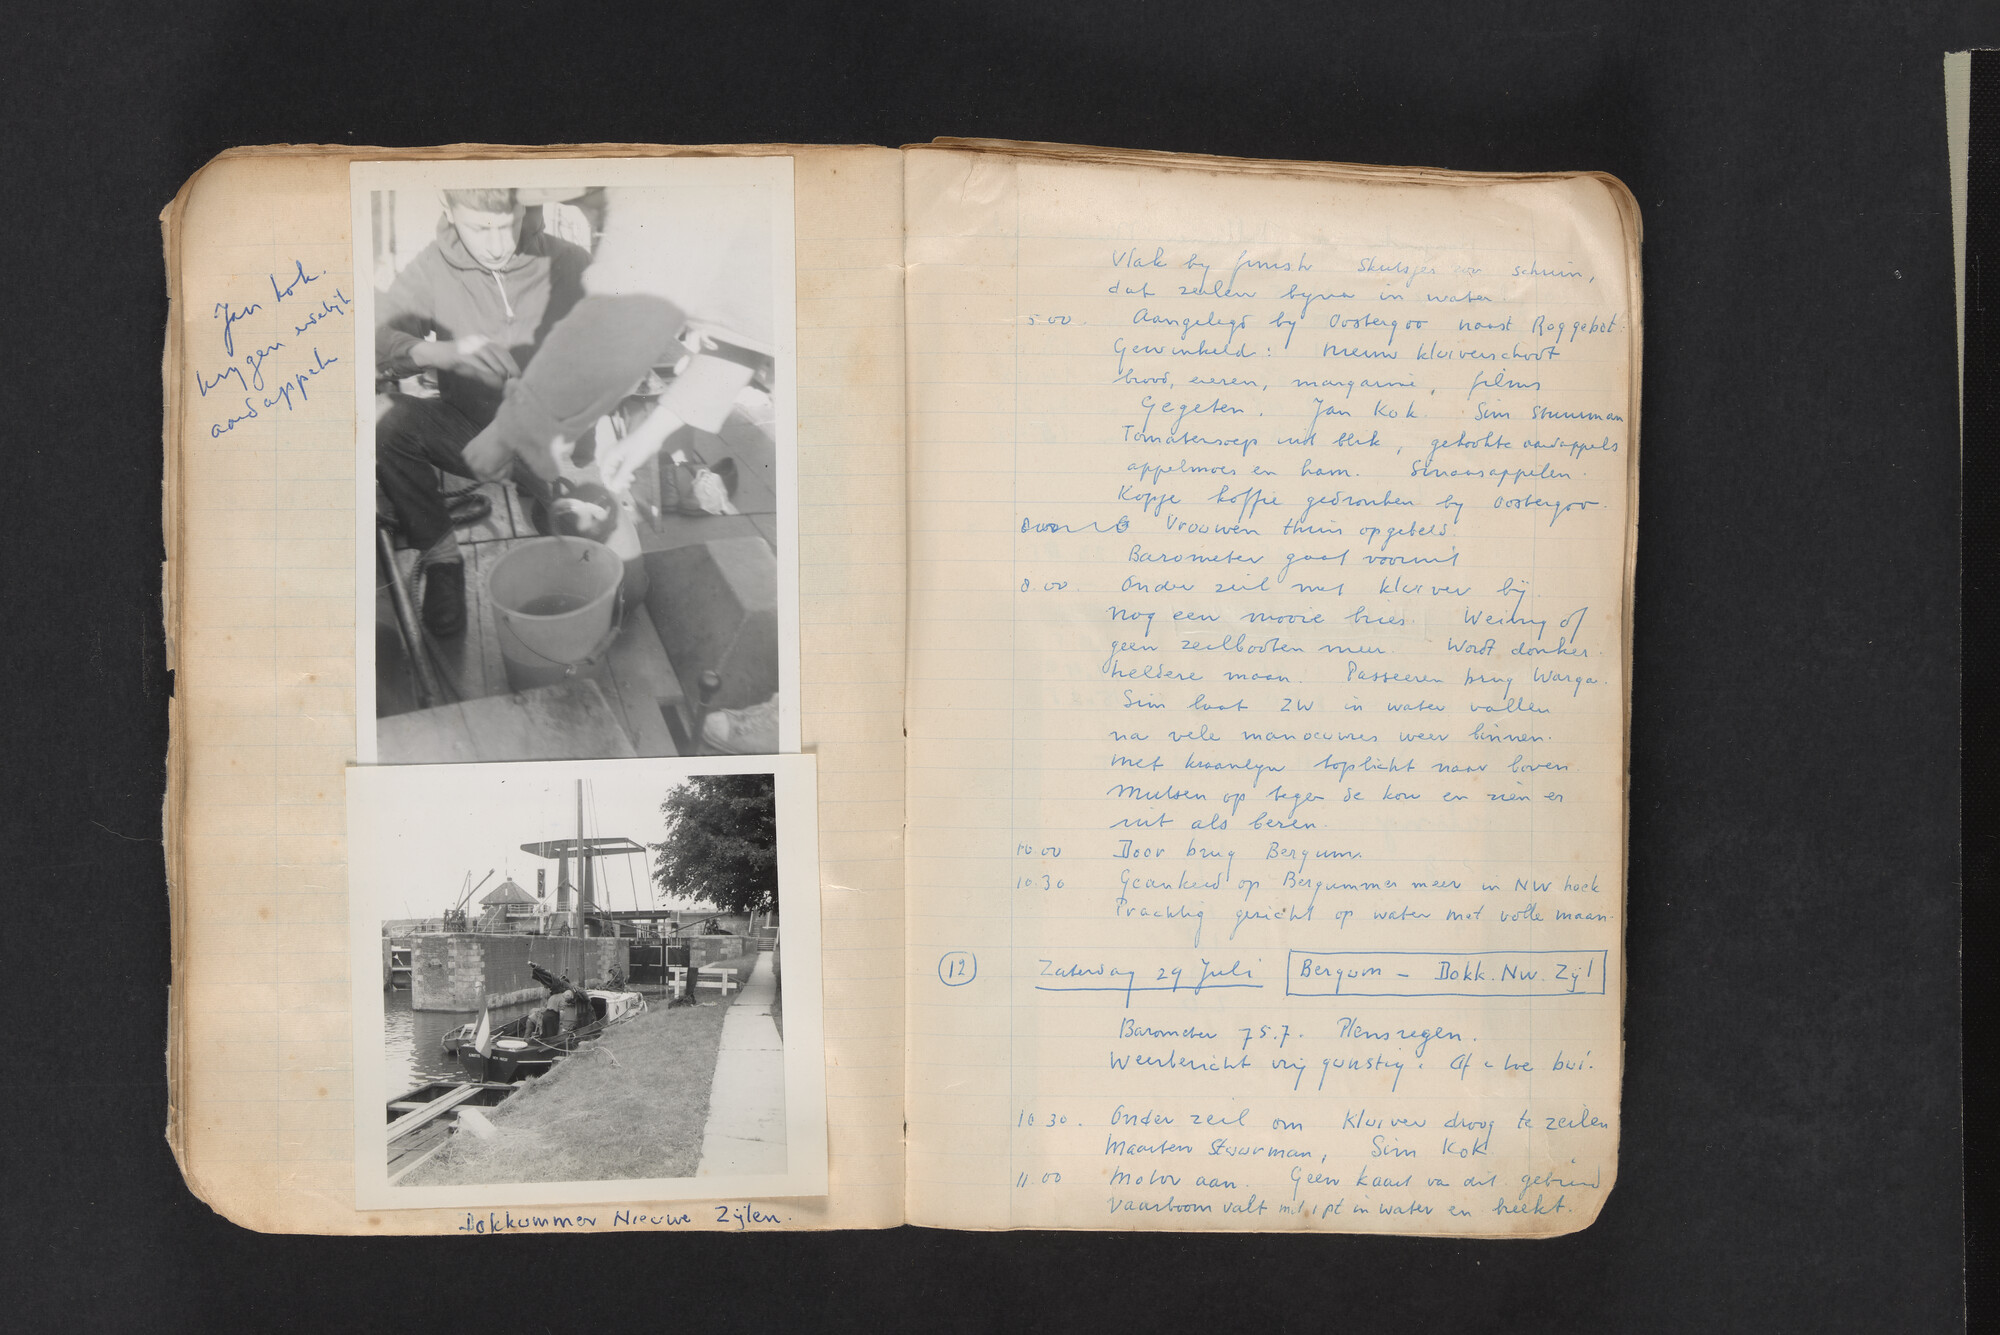 Jan Kok.
krygen eidelijk
aardappels
Dokkummer Nieuwe Zijlen.
Vlak by finish Skutsjes zo schuin,
dat zeilen byna in water.
5.00 Aangelegd by Oostergoo naast Roggebot.
Gewinkeld: nieuw kluiverschoot
brood, eieren, margarine, films
Gegeten. Jan Kok. Sim Stuurman
Tomatensoep uit blik, gekookte aardappels
appelmoes en ham. Sinaasappelen.
Kopje koffie gedronken by Oostergoo.
Vrouwen thuis opgebeld.
Barometer gaat vooruit
8.00 Onder zeil met kluiver bij.
nog een mooie bries. Weinig of
geen zeilboten meer. Wordt donker.
heldere maan. Passeeren brug Warga.
Sim laat ZW in water vallen
na vele manoeuvres weer binnen.
Met kraanlyn toplicht naar boven
Mutsen op tegen de kou en zien er
uit als beren.
10.00 Door brug Bergum.
10.30 Geankerd op Bergummer meer in NW hoek
Prachtig gezicht op water met volle maan.
12 Zaterdag 29 Juli Bergum - Dokk. Nw. Zijl
Barometer 75.7. Plensregen.
Weerbericht vrij gunstig. Af en toe bui.
10.30. Onder zeil om kluiver droog te zeilen
Maarten Stuurman, Sim Kok
11.00 Motor aan. Geen kaart van dit gebied
Vaarboom valt met pt in water en breekt.